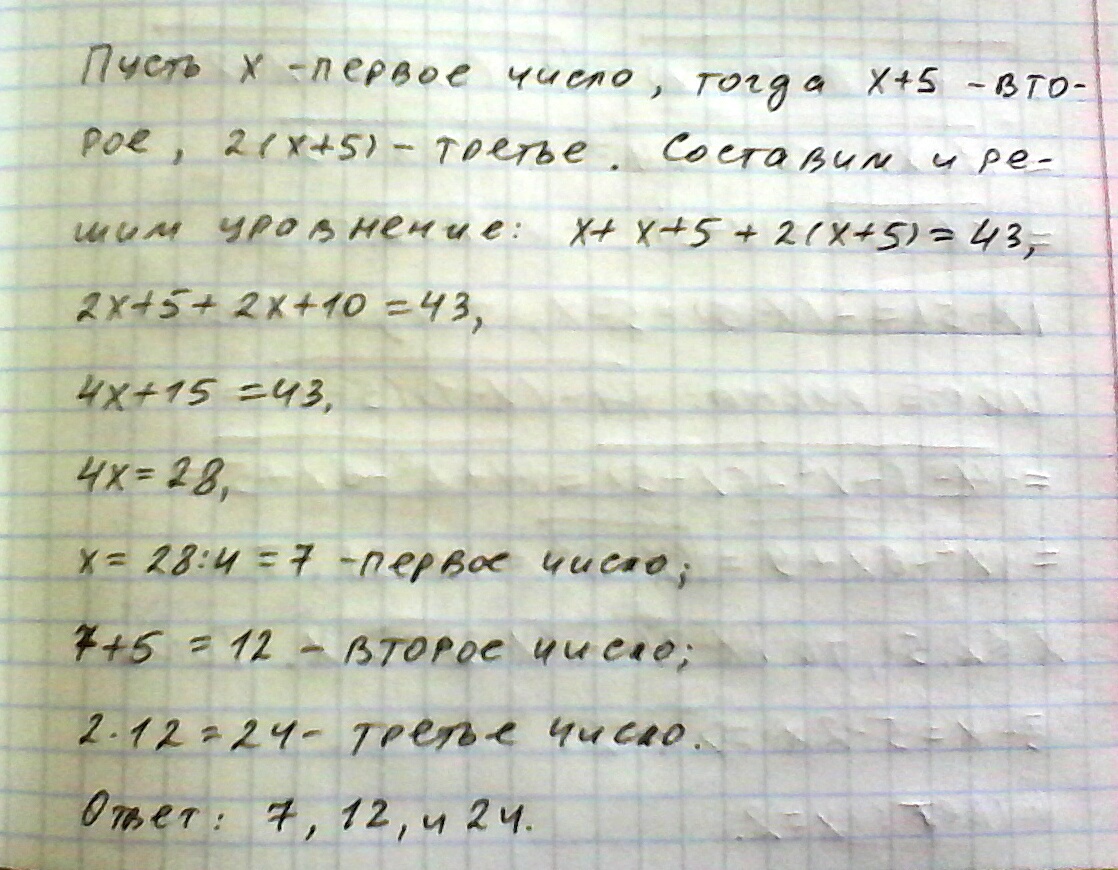 Пусть x - первое число, тогда x+5 - вто-
рое, 2(x+5) - третье. Составим и ре-
шим уравнение: x+ x+5 + 2(x+5) = 43,
2x+5+ 2x+10 = 43,
4x+15 = 43,
4x = 28,
x = 28:4 = 7 - первое число;
7+5 = 12 - второе число;
2·12 = 24 - третье число.
Ответ: 7, 12, и 24.